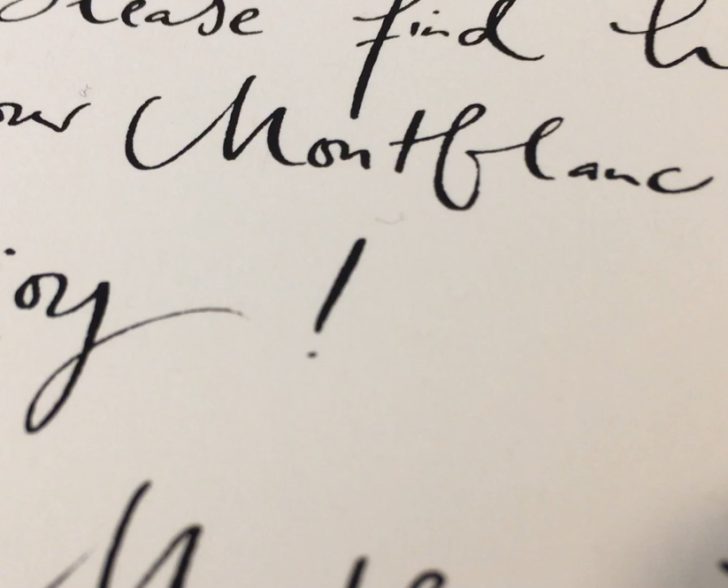 Please find h
our Montblanc
joy !